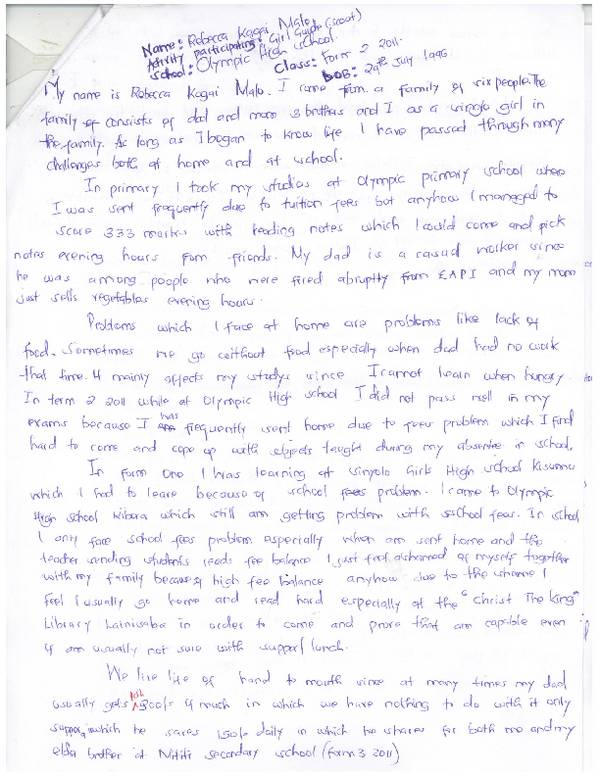 Name: Rebecca Kagai Malo.
Activity participating: Girl Guide (scout)
School: Olympic High school.
Class: Form 2 2011.
DOB: 29th July 1996
My name is Rebecca Kagai Malo. I come from a family of six people. The
family of consists of dad and mom 3 brothers and I as a single girl in
the family. As long as I began to know life I have passed through many
challenges both at home and at school.
In primary I took my studies at Olympic primary school where
I was sent frequently due to tuition fees but anyhow I managed to
score 333 marks with reading notes which I could come and pick
notes evening hours from friends. My dad is a casual worker since
he was among people who were fired abruptly from EAPI and my mom
just sells vegetables evening hours.
Problems which I face at home are problems like lack of
food. Sometimes we go without food especially when dad had no work
that time. It mainly affects my studys since I cannot learn when hungry.
In term 2 2011 while at Olympic High school I did not pass well in my
exams because I was frequently sent home due to fees problem which I find
hard to come and cope up with subjects taught during my absence in school.
In form one I was learning at Sinyolo Girls High school Kisumu
which I had to leave because of school fees problem. I came to Olympic
High school Kibera which still am getting problem with school fees. In school
I only face school fees problem especially when am sent home and the
teacher sending students reads fee balance I just feel ashamed of myself together
with my family because of high fee balance anyhow due to the shame I
feel I usually go home and read hard especially at the "Christ The King"
Library Lainisaba in order to come and prove that am capable even
if am usually not sure with supper/lunch.
We live life of hand to mouth since at many times my dad
usually gets ksh 300/= if much in which we have nothing to do with it only
supper, which he saves 150/= daily in which he shares for both me and my
elder brother at secondary school (form 3 2011)